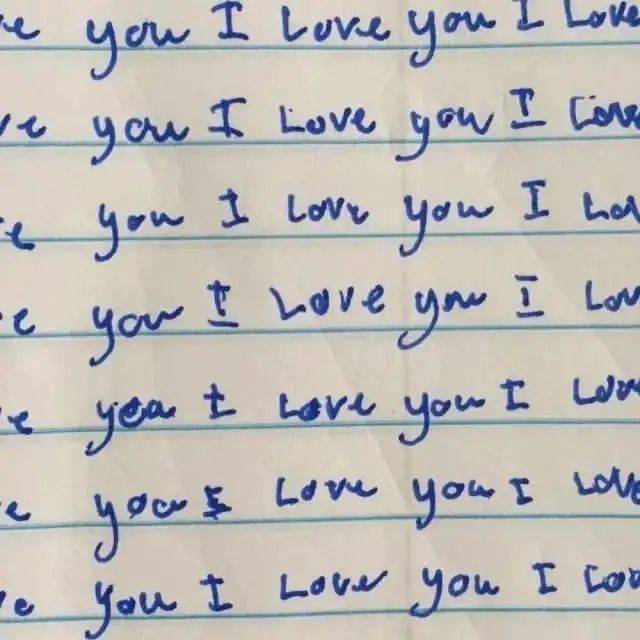 ve you I Love you I Love
ve you I Love you I Love
ve you I Love you I Lov
ve you I Love you I Lov
ve you I Love you I Love
ve you I Love you I Love
ve you I Love you I Lov